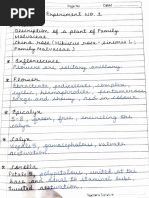 Page No.
Date
Experiment No. 1
Description of a plant of Family
Malvaceae
China rose (Hibiscus rosa-sinensis L.;
Family Malvaceae)
* Inflorescence
Flowers are solitary, axillary
* Flower
Bracteate, pedicellate, complete,
large and showy, red in colour
* Epicalyx
5-8, green, free, encircling the
calyx
* Calyx
Sepals 5, gamosepalous, valvate
aestivation.
* Corolla
Petals 5, polypetalous, united at the
base and adnate to staminal tube,
Twisted aestivation.
Teacher's Signature